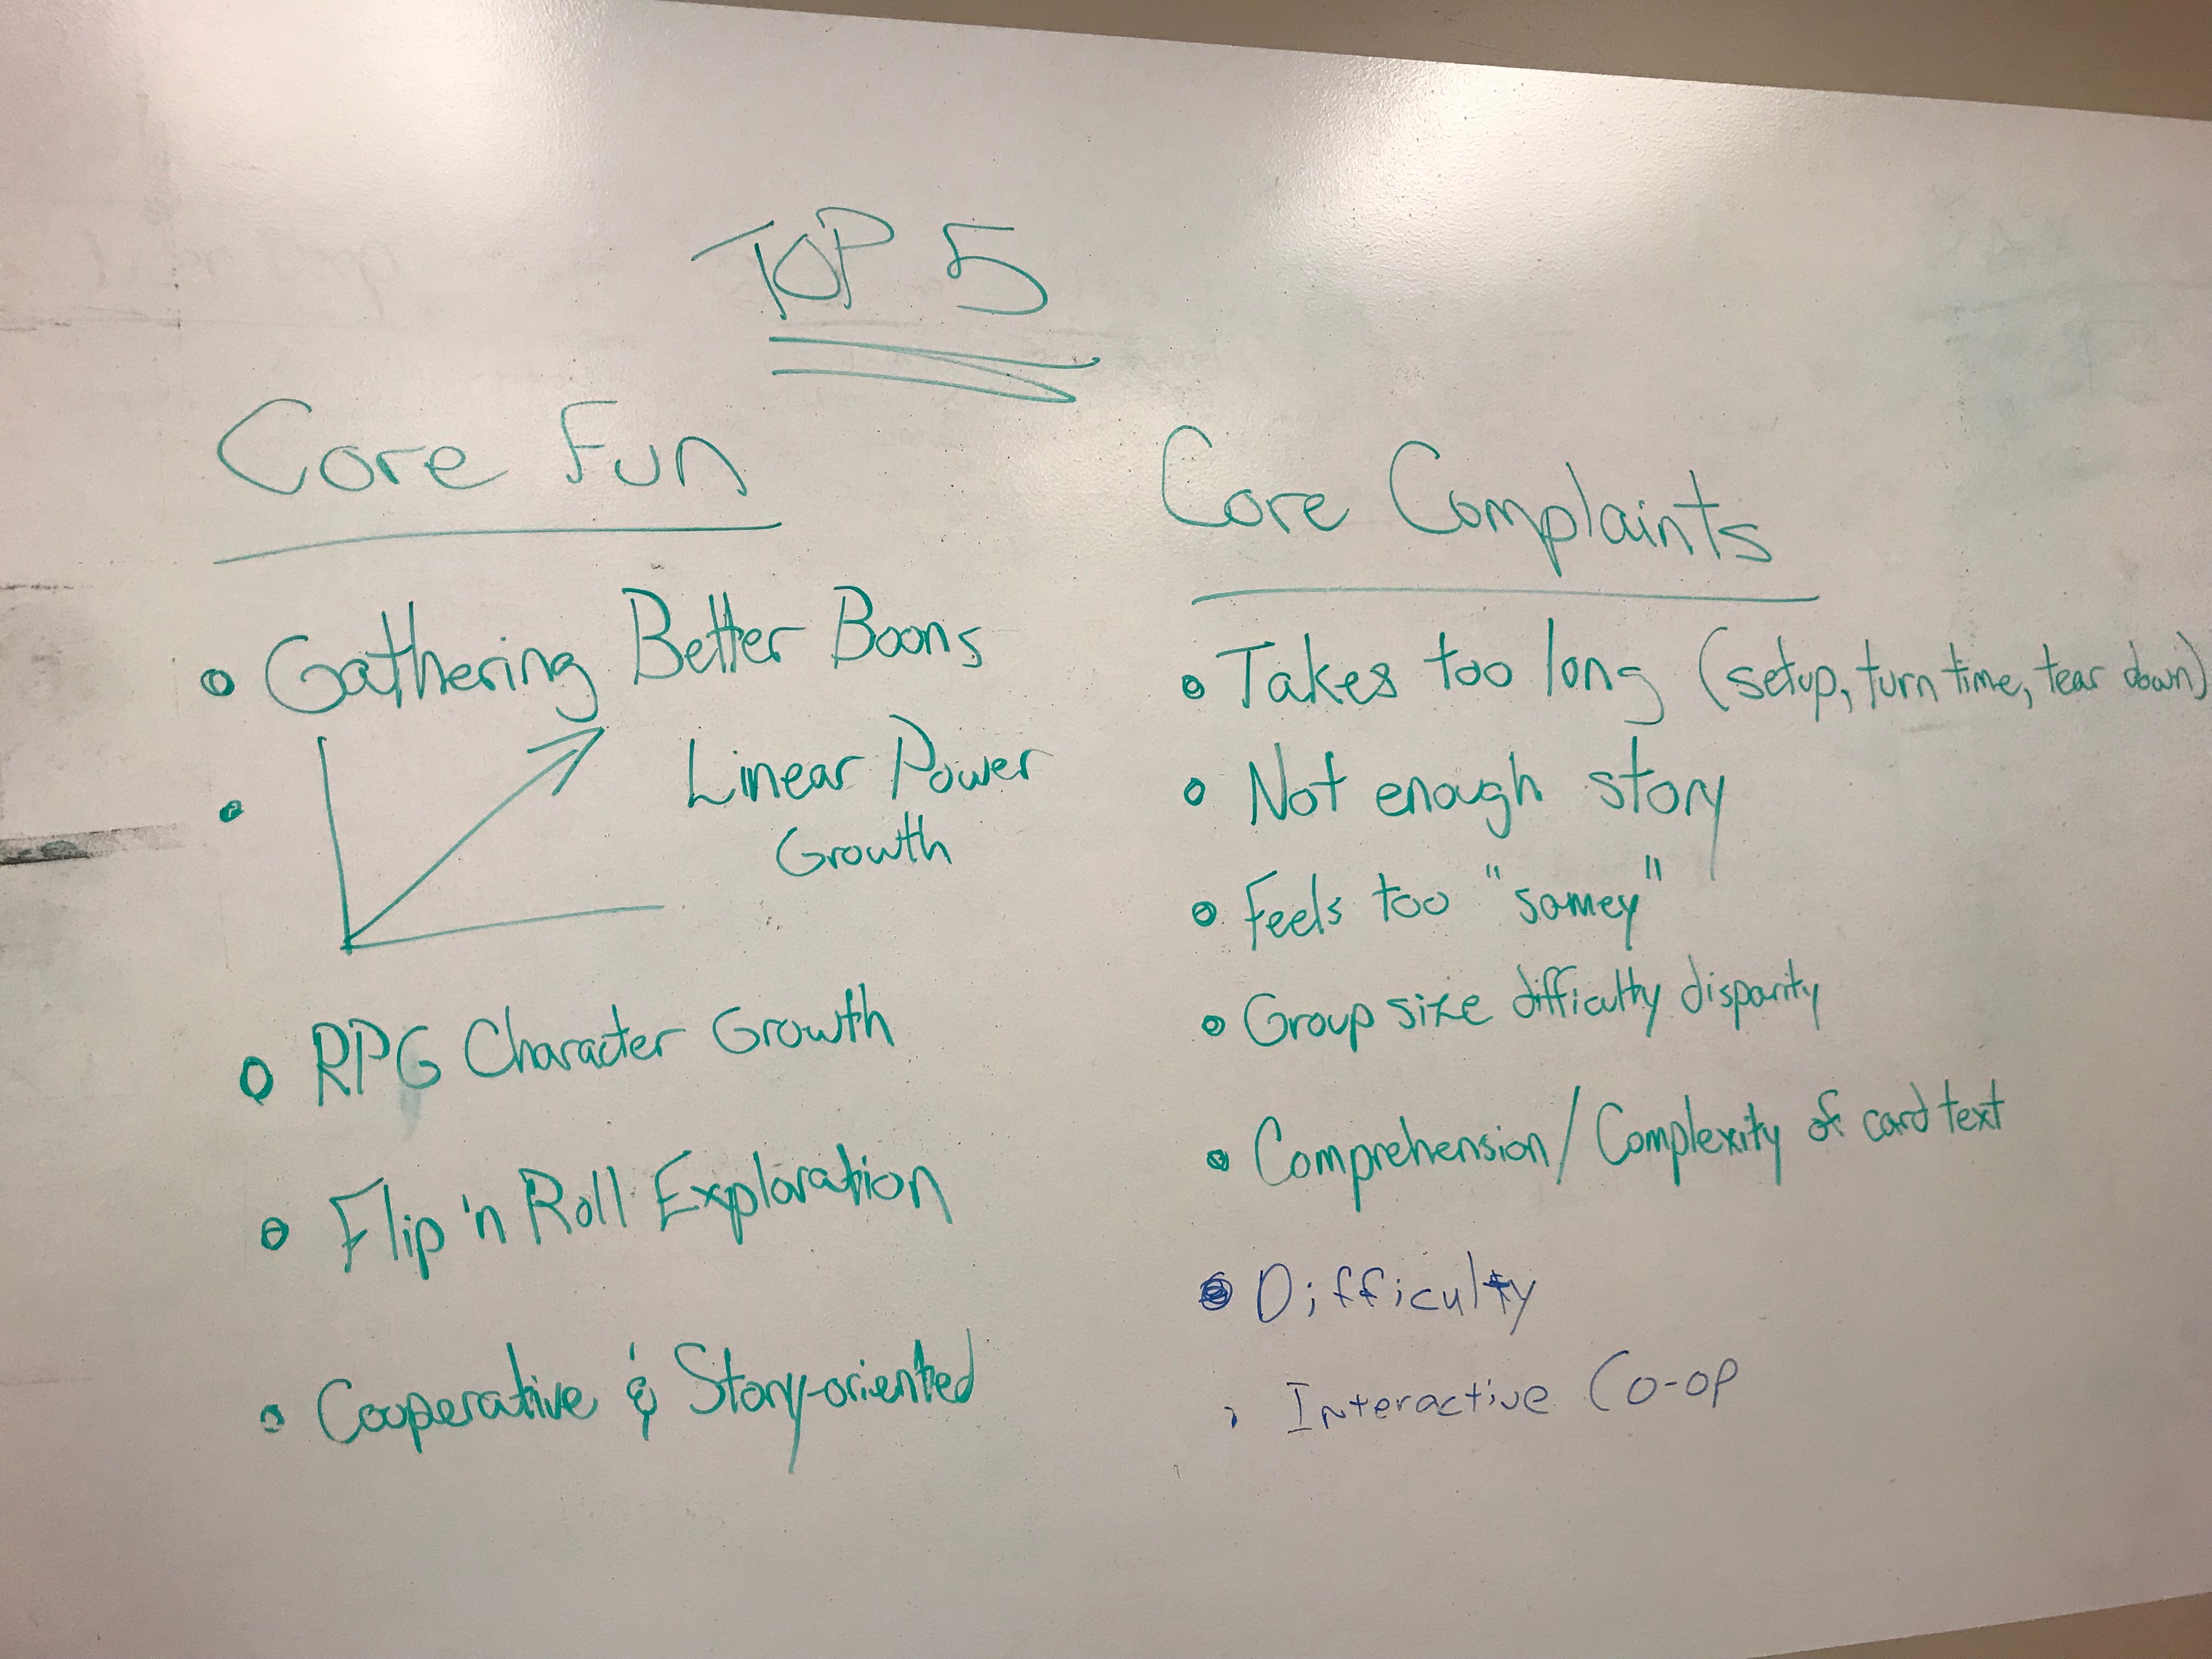 TOP 5
Core Fun
• Gathering Better Boons
• Linear Power
Growth
• RPG Character Growth
• Flip 'n Roll Exploration
• Cooperative & Story-oriented
Core Complaints
• Takes too long (setup, turn time, tear down)
• Not enough story
• Feels too "samey"
• Group size difficulty disparity
• Comprehension/Complexity of card text
• Difficulty
• Interactive Co-op